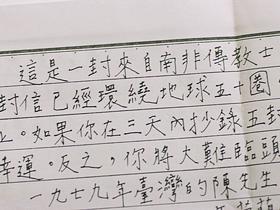 這是一封來自南非傳教士
封信已經環繞地球五十圈
上。如果你在三天內抄錄五封
幸運。反之，你將大難臨頭
一九七九年臺灣的陳先生